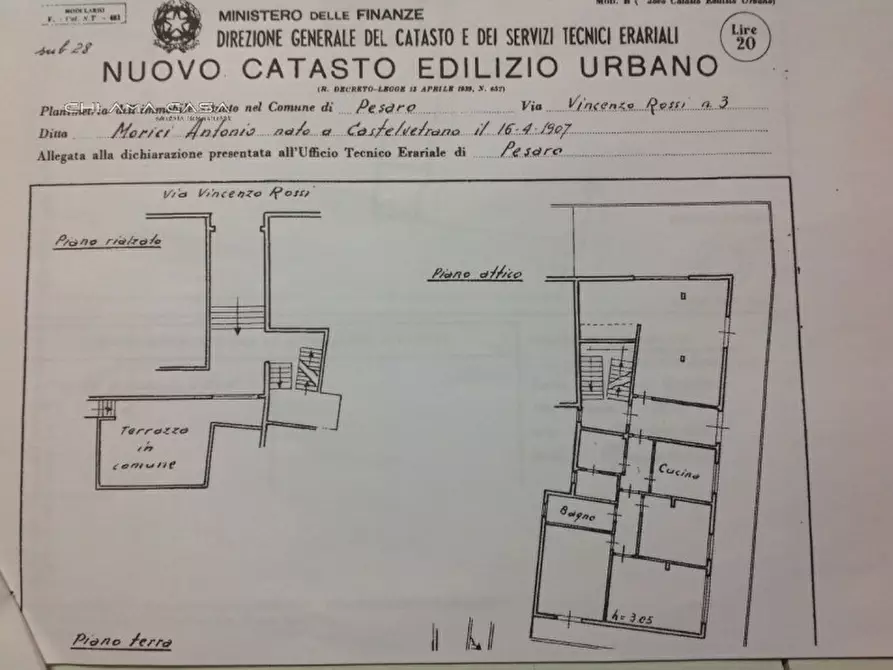 MODULARIO
F. - Cat. S.T. - 403
sub 28
MINISTERO DELLE FINANZE
DIREZIONE GENERALE DEL CATASTO E DEI SERVIZI TECNICI ERARIALI
NUOVO CATASTO EDILIZIO URBANO
(R. DECRETO-LEGGE 13 APRILE 1939, N. 652)
Lire
20
Planimetria dell'immobile situato nel Comune di Pesaro Via Vincenzo Rossi n. 3
CHIAMA CASA
Ditta Morici Antonio nato a Castelvetrano il 16-4-1907
Allegata alla dichiarazione presentata all'Ufficio Tecnico Erariale di Pesaro
Via Vincenzo Rossi
Piano rialzato
Piano attico
Terrazza
in
comune
Cucina
Bagno
h= 3.05
Piano terra